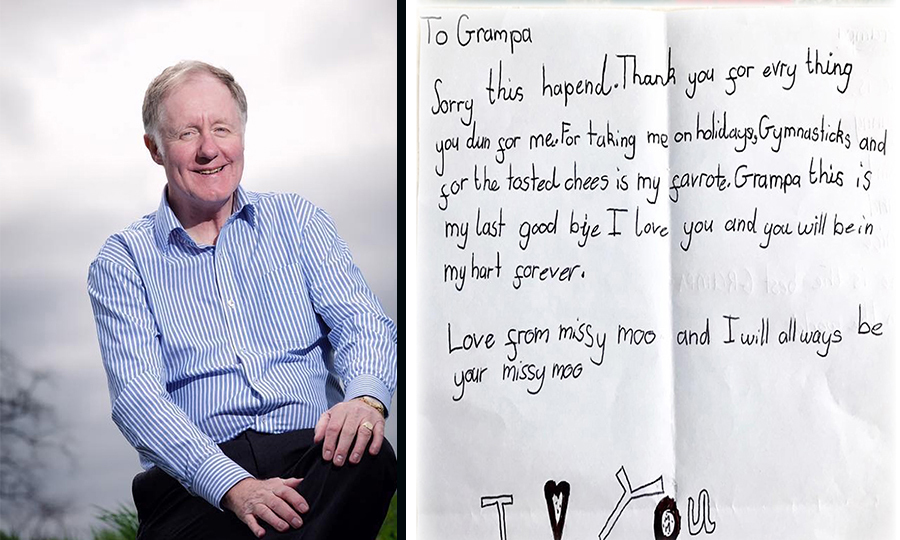 To Grampa
Sorry this hapend. Thank you for evry thing
you dun for me. For taking me on holidays, Gymnasticks and
for the tosted chees is my favrote. Grampa this is
my last good bye I love you and you will be in
my hart forever.
Love from missy moo and I will all ways be
your missy moo
I ♥ You